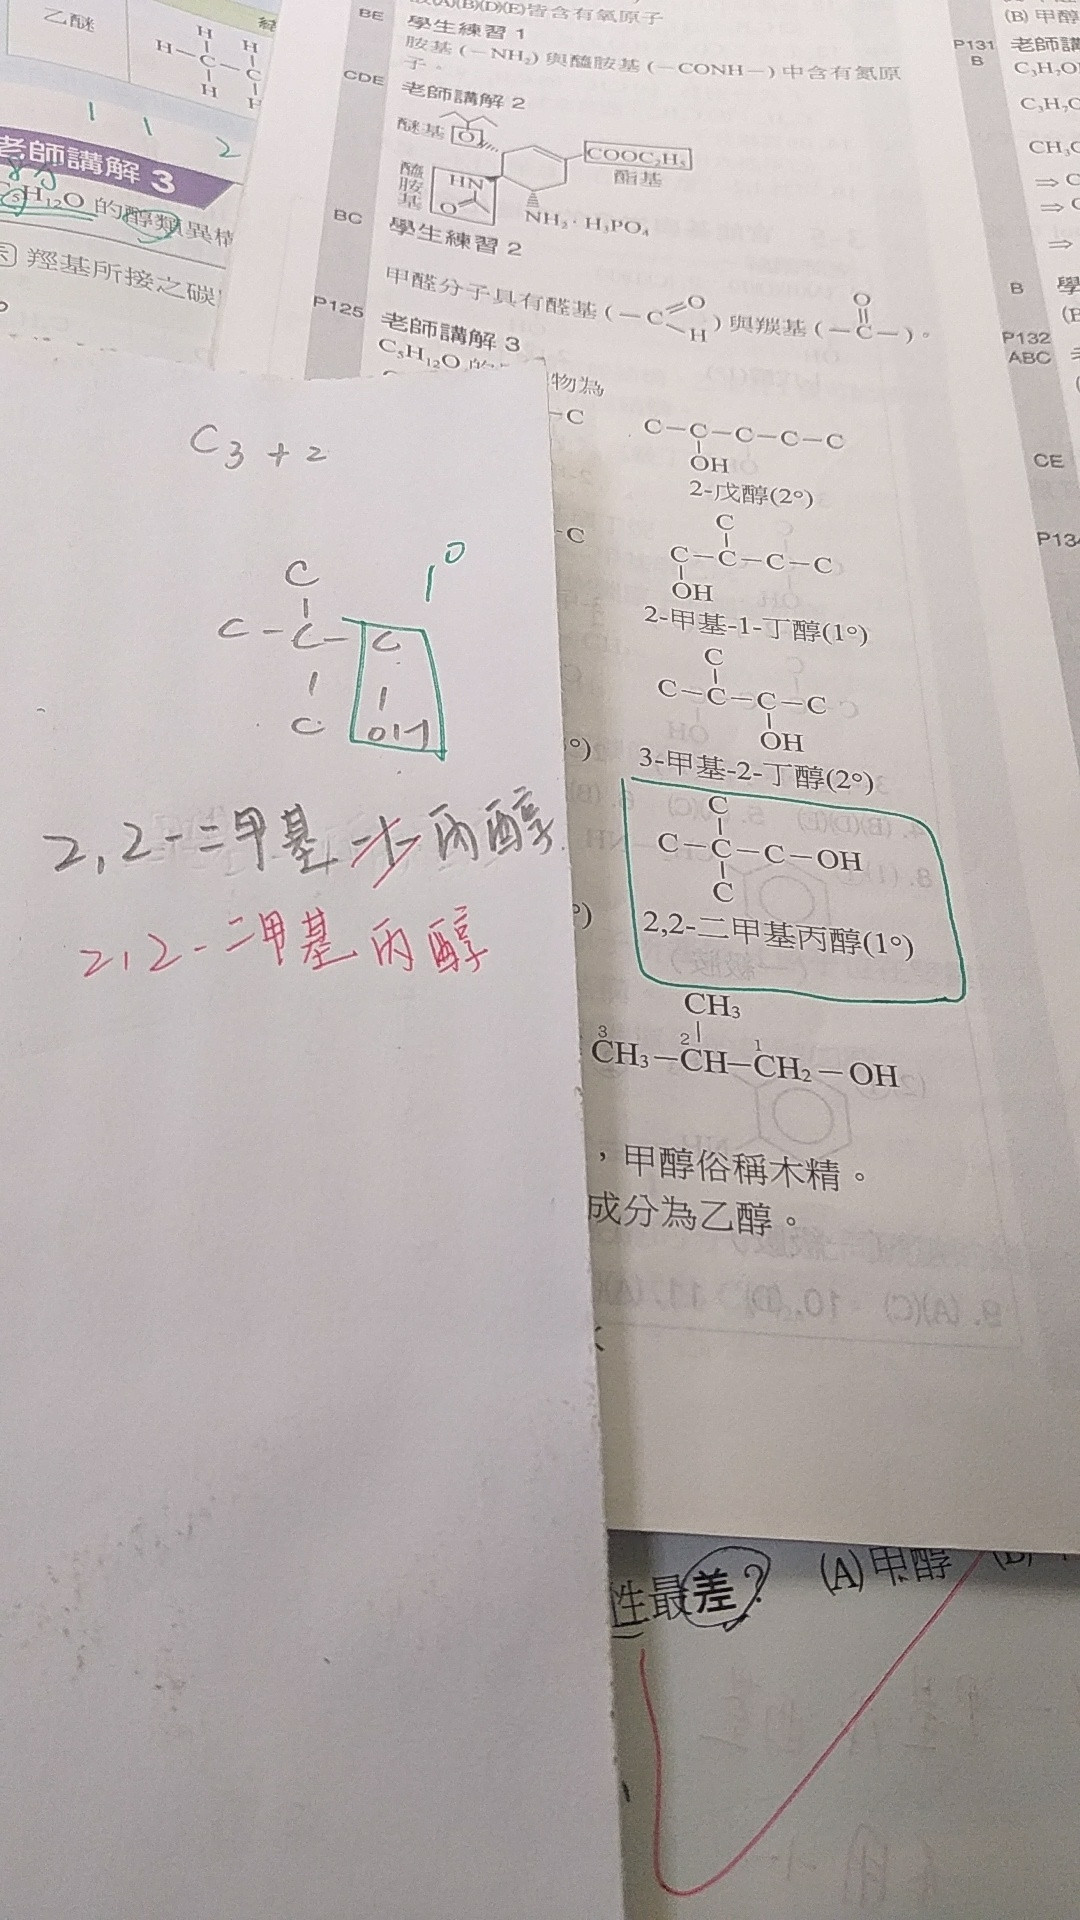 乙醚
老師講解 3
C₅H₁₂O 的醇類異構
羥基所接之碳
BE
(A)(B)(D)(E)皆含有氧原子
學生練習 1
胺基(－NH₂)與醯胺基(－CONH－)中含有氮原
子。
CDE
老師講解 2
醚基 O
COOC₂H₅
酯基
醯胺基
HN
O
NH₂．H₃PO₄
BC
學生練習 2
甲醛分子具有醛基(－C O H)與羰基(－C－)。
O
P125
老師講解 3
C₅H₁₂O 的
物為
C－C－C－C－C
OH
2-戊醇(2°)
C
C－C－C－C
OH
2-甲基-1-丁醇(1°)
C
C－C－C－C
OH
3-甲基-2-丁醇(2°)
C
C－C－C－OH
C
2,2-二甲基丙醇(1°)
CH₃
3 2 1
CH₃－CH－CH₂－OH
，甲醇俗稱木精。
成分為乙醇。
(B) 甲醇
P131
B
老師講
C₃H₇O
C₃H₇O
CH₃C
⇒
⇒
⇒
B
學
P132
ABC
CE
C₃+2
C
1°
C-C-C
C OH
2,2-二甲基-1-丙醇
2,2-二甲基丙醇
性最差？ (A)甲醇